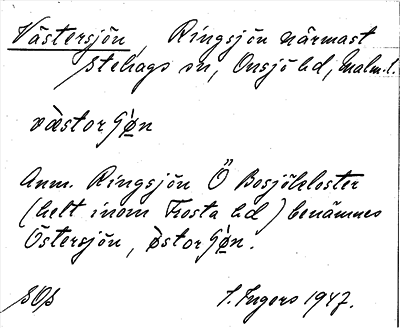 Västersjön, Ringsjön närmast
Stehags sn, Onsjö hd, Malm. l.
västorʃön
Anm. Ringsjön Ö Bosjökloster
(helt inom Frosta hd) benämnes
Östersjön, østorʃön.
SOs
I. Ingers 1947.